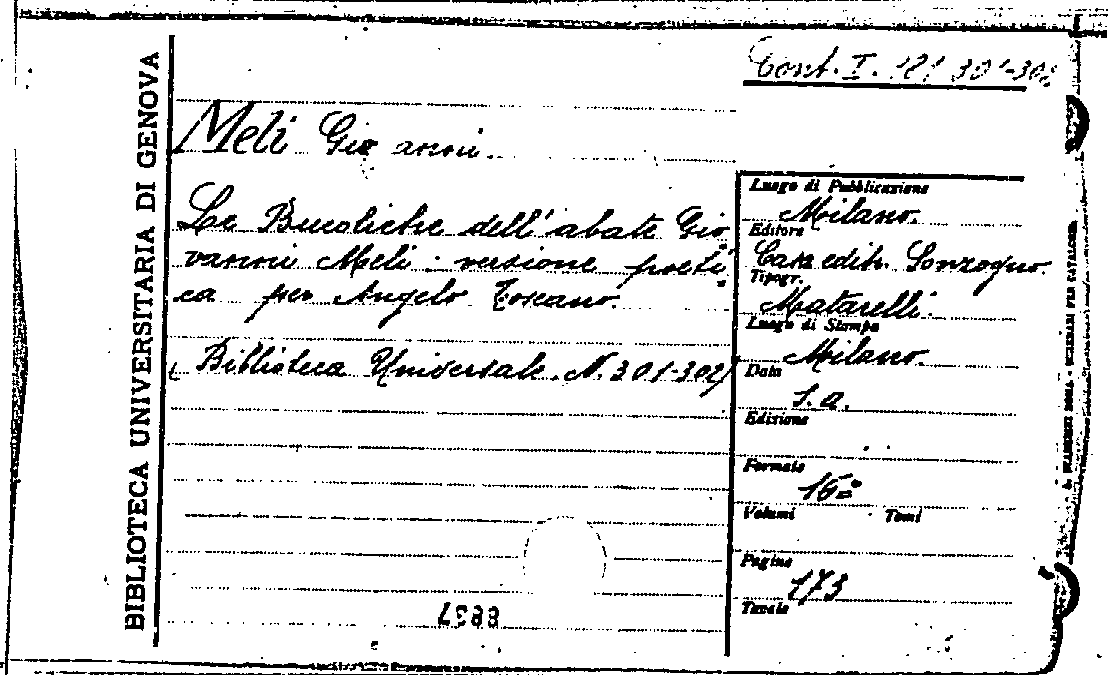 BIBLIOTECA UNIVERSITARIA DI GENOVA
Cont. I. 121 301-302
Meli Giovanni.
Le Bucoliche dell'abate Gio
vanni Meli: versione poeti
ca per Angelo Toscano.
(Biblioteca Universale. N. 301-302)
Luogo di Pubblicazione
Milano.
Editore
Casa edit. Sonzogno.
Tipogr.
Matarelli.
Luogo di Stampa
Milano.
Data
s.a.
Edizione
Formato
16º
Volumi Tomi
Pagine
173
Tavole